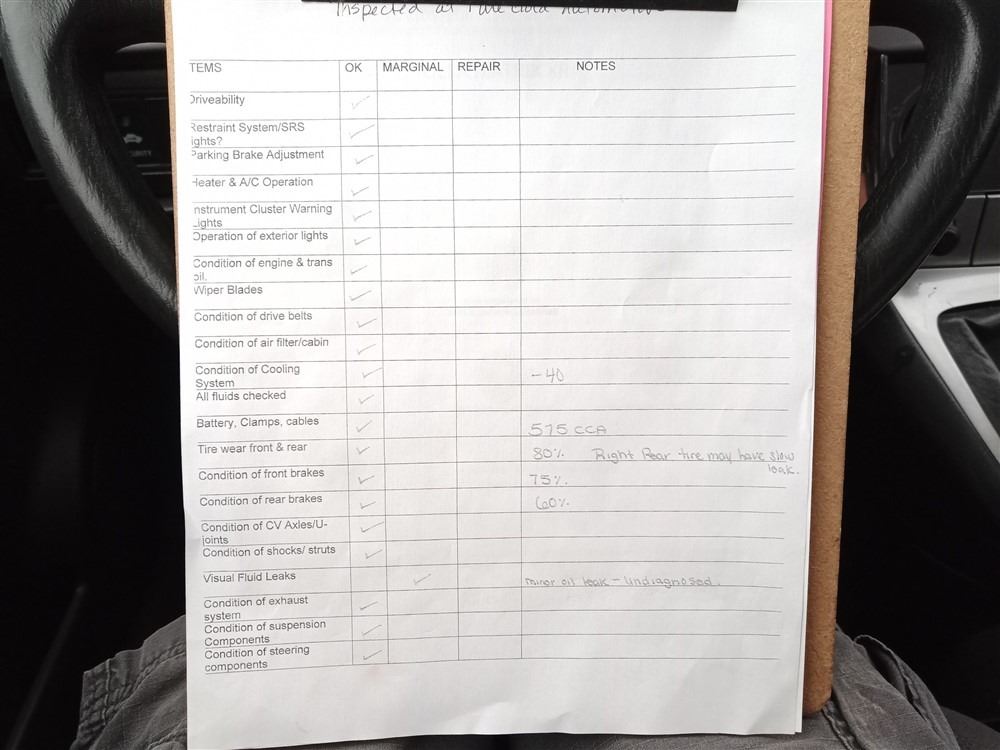 Inspected at Automotive
TEMS OK MARGINAL REPAIR NOTES
Driveability
Restraint System/SRS
ights?
Parking Brake Adjustment
Heater & A/C Operation
nstrument Cluster Warning
Lights
Operation of exterior lights
Condition of engine & trans
oil.
Wiper Blades
Condition of drive belts
Condition of air filter/cabin
Condition of Cooling
System
-40
All fluids checked
Battery, Clamps, cables 575 CCA
Tire wear front & rear 80% Right Rear tire may have slow
leak.
Condition of front brakes 75%.
Condition of rear brakes 60%
Condition of CV Axles/U-
joints
Condition of shocks/ struts
Visual Fluid Leaks minor oil leak - undiagnosed.
Condition of exhaust
system
Condition of suspension
Components
Condition of steering
components